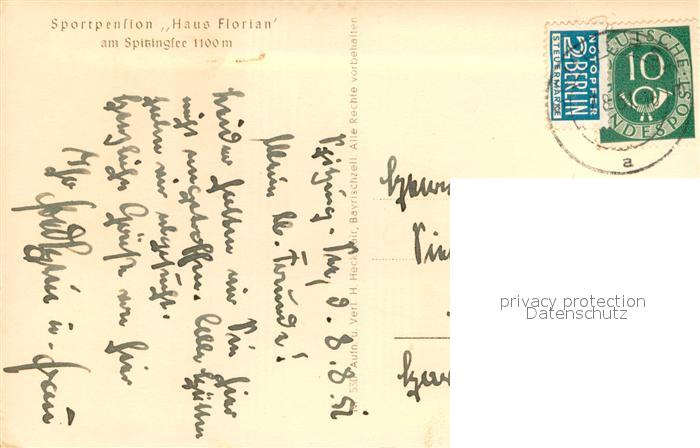 Sportpension „Haus Florian‘
am Spitzingsee 1100 m
NOTOPFER
2 BERLIN
STEUERMARKE
DEUTSCHE
10
BUNDESPOST
a
Spitzing-See, d. 8.8.52
Meine lb. Freunde!
Leider hatten wir Sie hier
nicht angetroffen. Alle Hütten
haben wir abgesucht.
Herzliche Grüße von hier
Ihr u. Frau
530 Aufn. u. Verl. H. Heckmair, Bayrischzell. Alle Rechte vorbehalten
privacy protection
Datenschutz